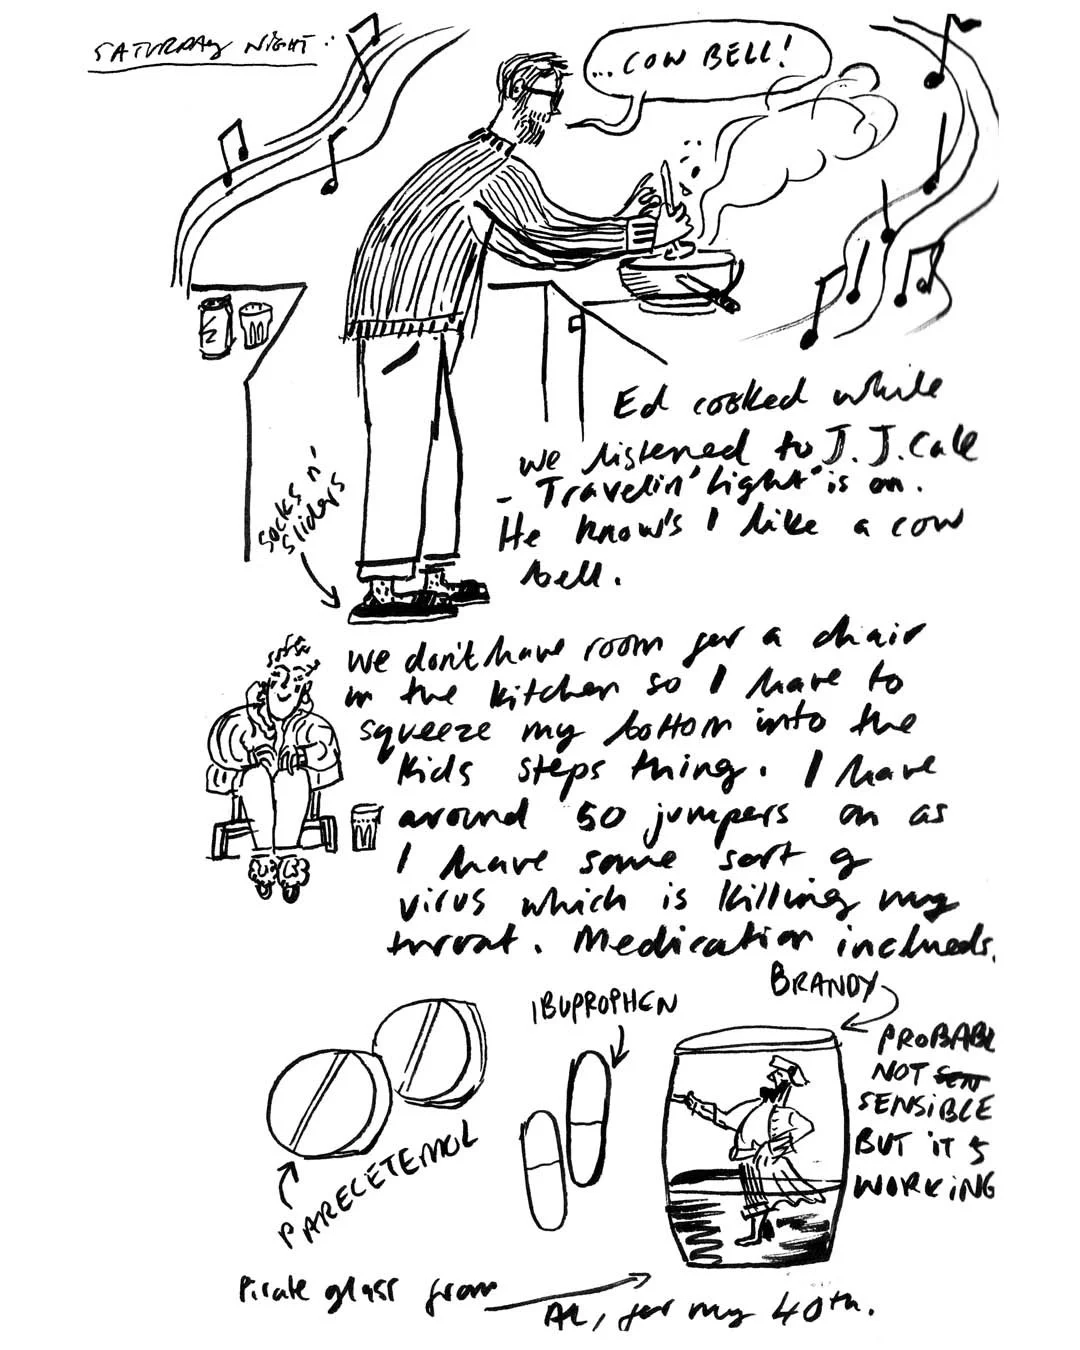 SATURDAY NIGHT:
...COW BELL!
Ed cooked while
we listened to J.J. Cale
- "Travelin' Light" is on.
He know's I like a cow
bell.
Socks n'
sliders
We don't have room for a chair
in the kitchen so I have to
squeeze my bottom into the
kids steps thing. I have
around 50 jumpers on as
I have some sort of
virus which is killing my
throat. Medication includes.
BRANDY
IBUPROPHEN
PROBABL
NOT
SENSIBLE
BUT IT'S
WORKING
PARECETEMOL
Pirate glass from
AL, for my 40th.